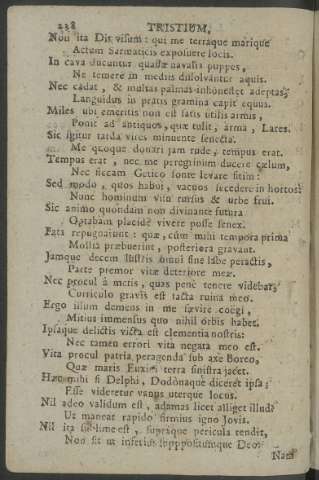 238 TRISTIUM,
Non ita Dis visum: qui me terraque marique
Actum Sarmaticis exposuere locis.
In cava ducuntur quassæ navalia puppes,
Ne temere in mediis dissolvantur aquis.
Nec cadat, & multas palmas inhonestet adeptas,
Languidus in pratis gramina capit equus.
Miles ubi emeritis non est satis utilis armis,
Ponit ad antiquos, quæ tulit, arma, Lares.
Sic igitur tarda vires minuente senecta.
Me quoque donari jam rude, tempus erat.
Tempus erat, nec me peregrinum ducere cælum,
Nec siccam Getico fonte levare sitim:
Sed modo, quos habui, vacuos secedere in hortos:
Nunc hominum visu rursus & urbe frui.
Sic animo quondam non divinante futura
Optabam placide vivere posse senex.
Fata repugnarunt: quæ, cum mihi tempora prima
Mollia præbuerint, posteriora gravant.
Jamque decem lustris omni sine labe peractis,
Parte premor vitæ deteriore meæ.
Nec procul à metis, quas pene tenere videbar,
Curriculo gravis est facta ruina meo.
Ergo illum demens in me sævire coëgi,
Mitius immensus quo nihil orbis habet.
Ipsaque delictis victa est clementia nostris:
Nec tamen errori vita negata meo est.
Vita procul patria peragenda sub axe Boreo,
Quæ maris Euxini terra sinistra jacet.
Hæc mihi si Delphi, Dodònaque diceret ipsa;
Esse videretur vanus uterque locus.
Nil adeo validum est, adamas licet alliget illud,
Ut maneat rapido firmius igno Jovis.
Nil ita sublime est, supraque pericula tendit,
Non sit ut inferius suppositumque Deo:
Nam